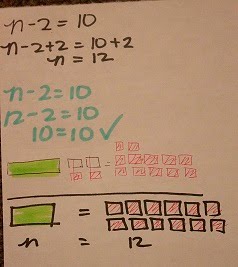 n-2=10
n-2+2=10+2
n=12
n-2=10
12-2=10
10=10✓
=
=
n = 12